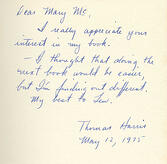 Dear Mary Mc,
I really appreciate your
interest in my book.
— I thought that doing the
next book would be easier,
but I'm finding out different.
My best to Lew.
Thomas Harris
May 12, 1975